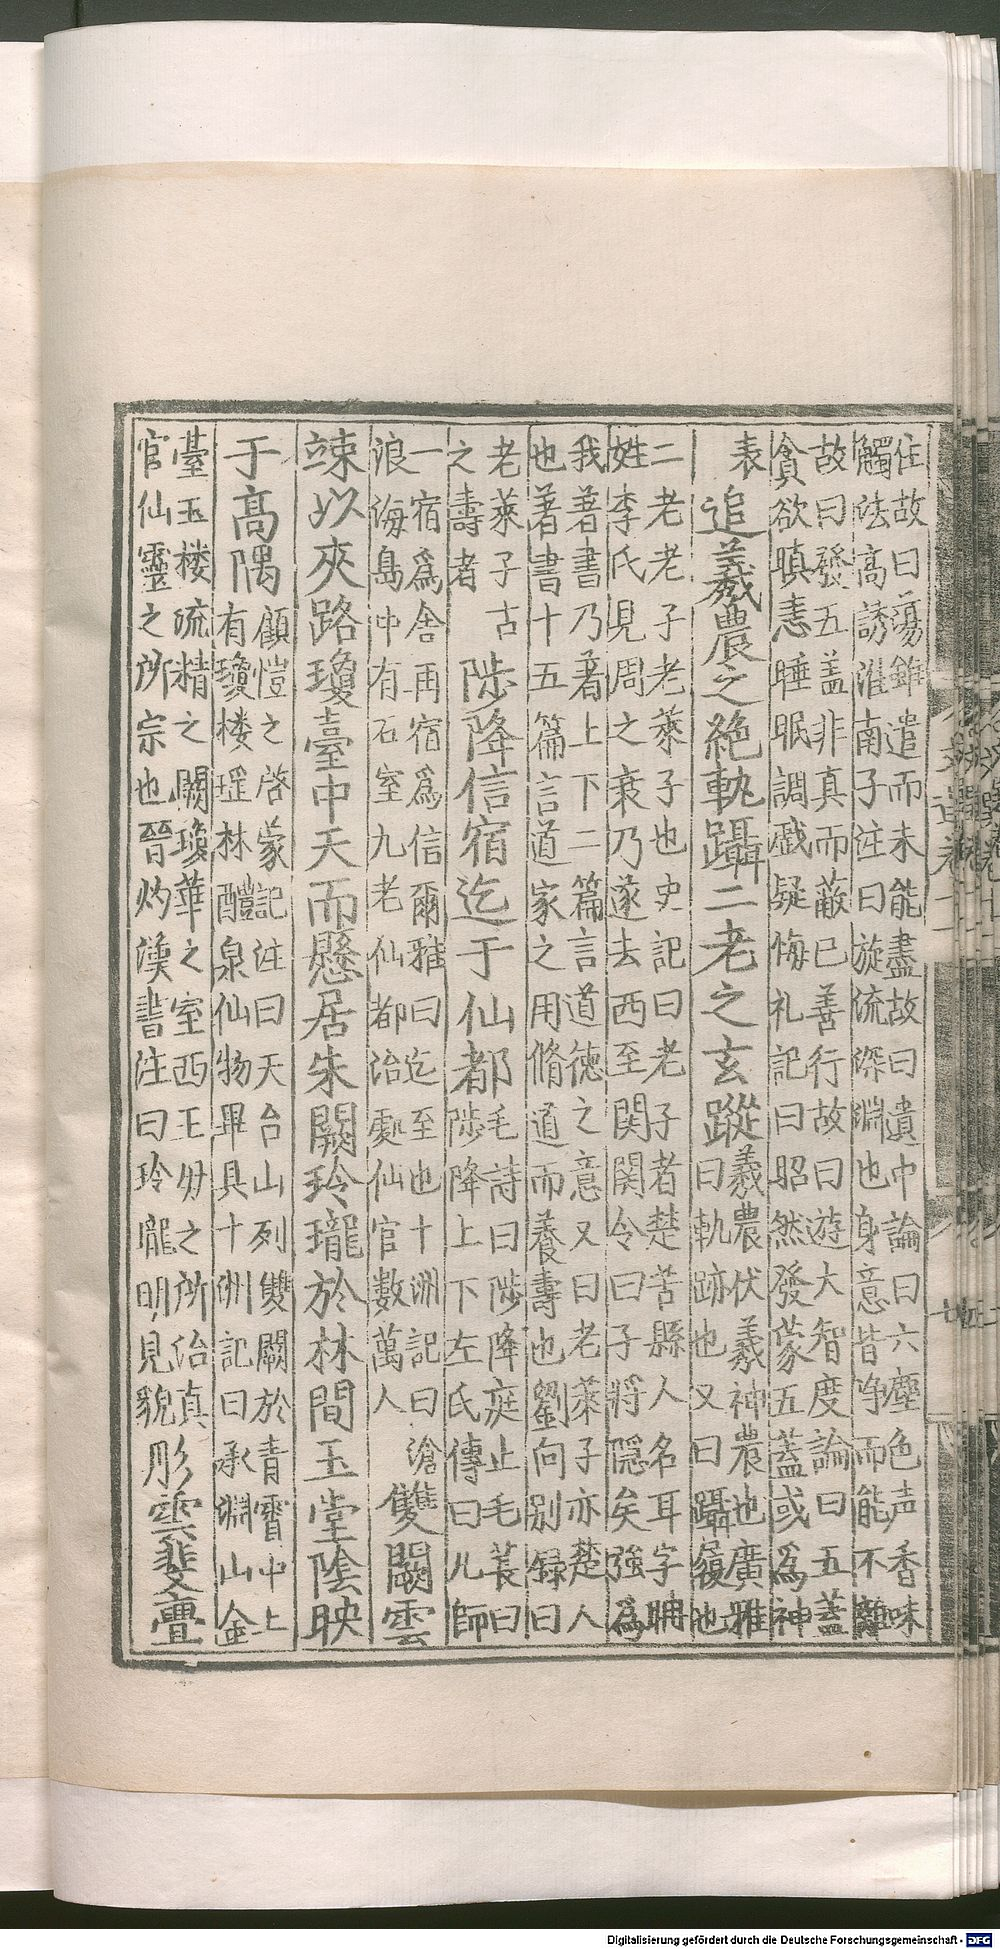 住故曰蕩雖遣而未能盡故曰遺中論曰六塵色声香味
觸法高誘淮南子注曰旋流深淵也身意皆净而能不離
故曰發五盖非真而蔽已善行故曰遊大智度論曰五蓋
貪欲瞋恚睡眠調戲疑悔礼記曰昭然發蒙五蓋或為神
表
追羲農之絶軌躡二老之玄蹤
羲農伏羲神農也廣雅
曰軌跡也又曰躡履也
二老老子老萊子也史記曰老子者楚苦縣人名耳字聃
姓李氏見周之衰乃遂去西至関関令曰子將隱矣強為
我著書乃著上下二篇言道德之意又曰老萊子亦楚人
也著書十五篇言道家之用脩道而養壽也劉向别録曰
老萊子古
之壽者
陟降信宿迄于仙都
毛詩曰陟降庭止毛萇曰
陟降上下左氏傳曰凡師
一宿爲舎再宿爲信爾雅曰迄至也十洲記曰滄
浪海島中有石室九老仙都治處仙官數萬人
雙闕雲
竦以夾路瓊臺中天而懸居朱闕玲瓏於林間玉堂陰映
于高隅
顧愷之啓蒙記注曰天台山列雙闕於青霄中上
有瓊楼瑶林醴泉仙物畢具十洲記曰承淵山金
臺玉楼流精之闕瓊華之室西王母之所治真
官仙靈之所宗也晉灼漢書注曰玲瓏明見貌
彤雲斐亹